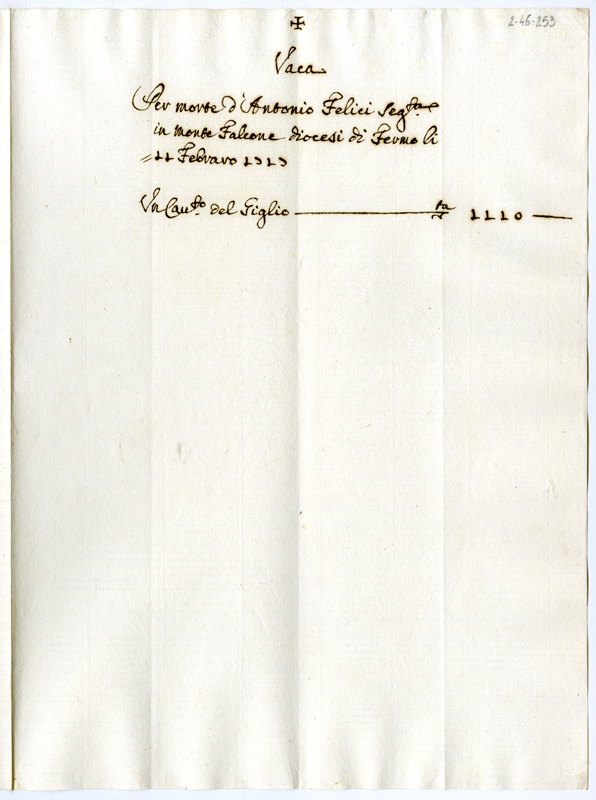 ✠
2-46-253
Vaca
Per morte d'Antonio Felici seg.ta
in monte Falcone diocesi di Fermo li
11 Febraro 1713
Un Cau.to del Giglio 1110